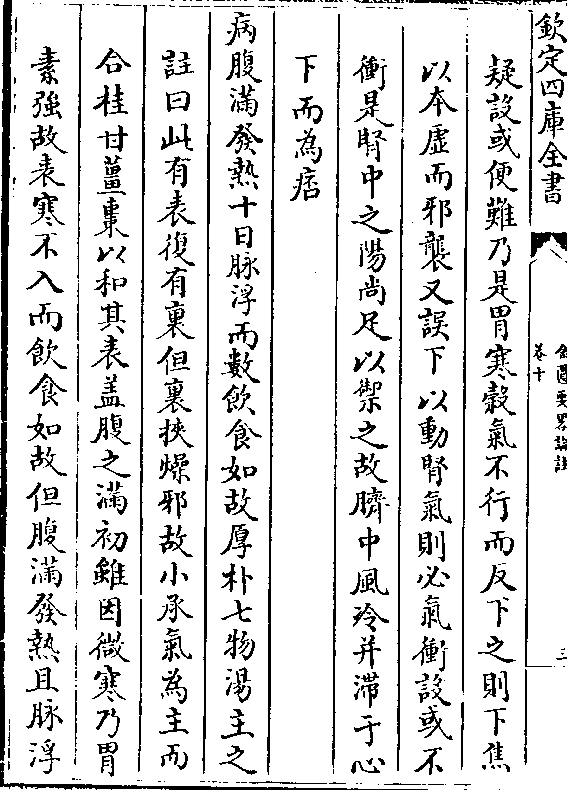 欽定四庫全書
金匱要畧論註
卷十
三
疑設或便難乃是胃寒穀氣不行而反下之則下焦
以本虛而邪襲又誤下以動腎氣則必氣衝設或不
衝是腎中之陽尚足以禦之故臍中風冷并滯于心
下而為痞
病腹滿發熱十日脉浮而數飲食如故厚朴七物湯主之
註曰此有表復有裏但裏挾燥邪故小承氣為主而
合桂甘薑棗以和其表盖腹之滿初雖因微寒乃胃
素強故表寒不入而飲食如故但腹滿發熱且脉浮